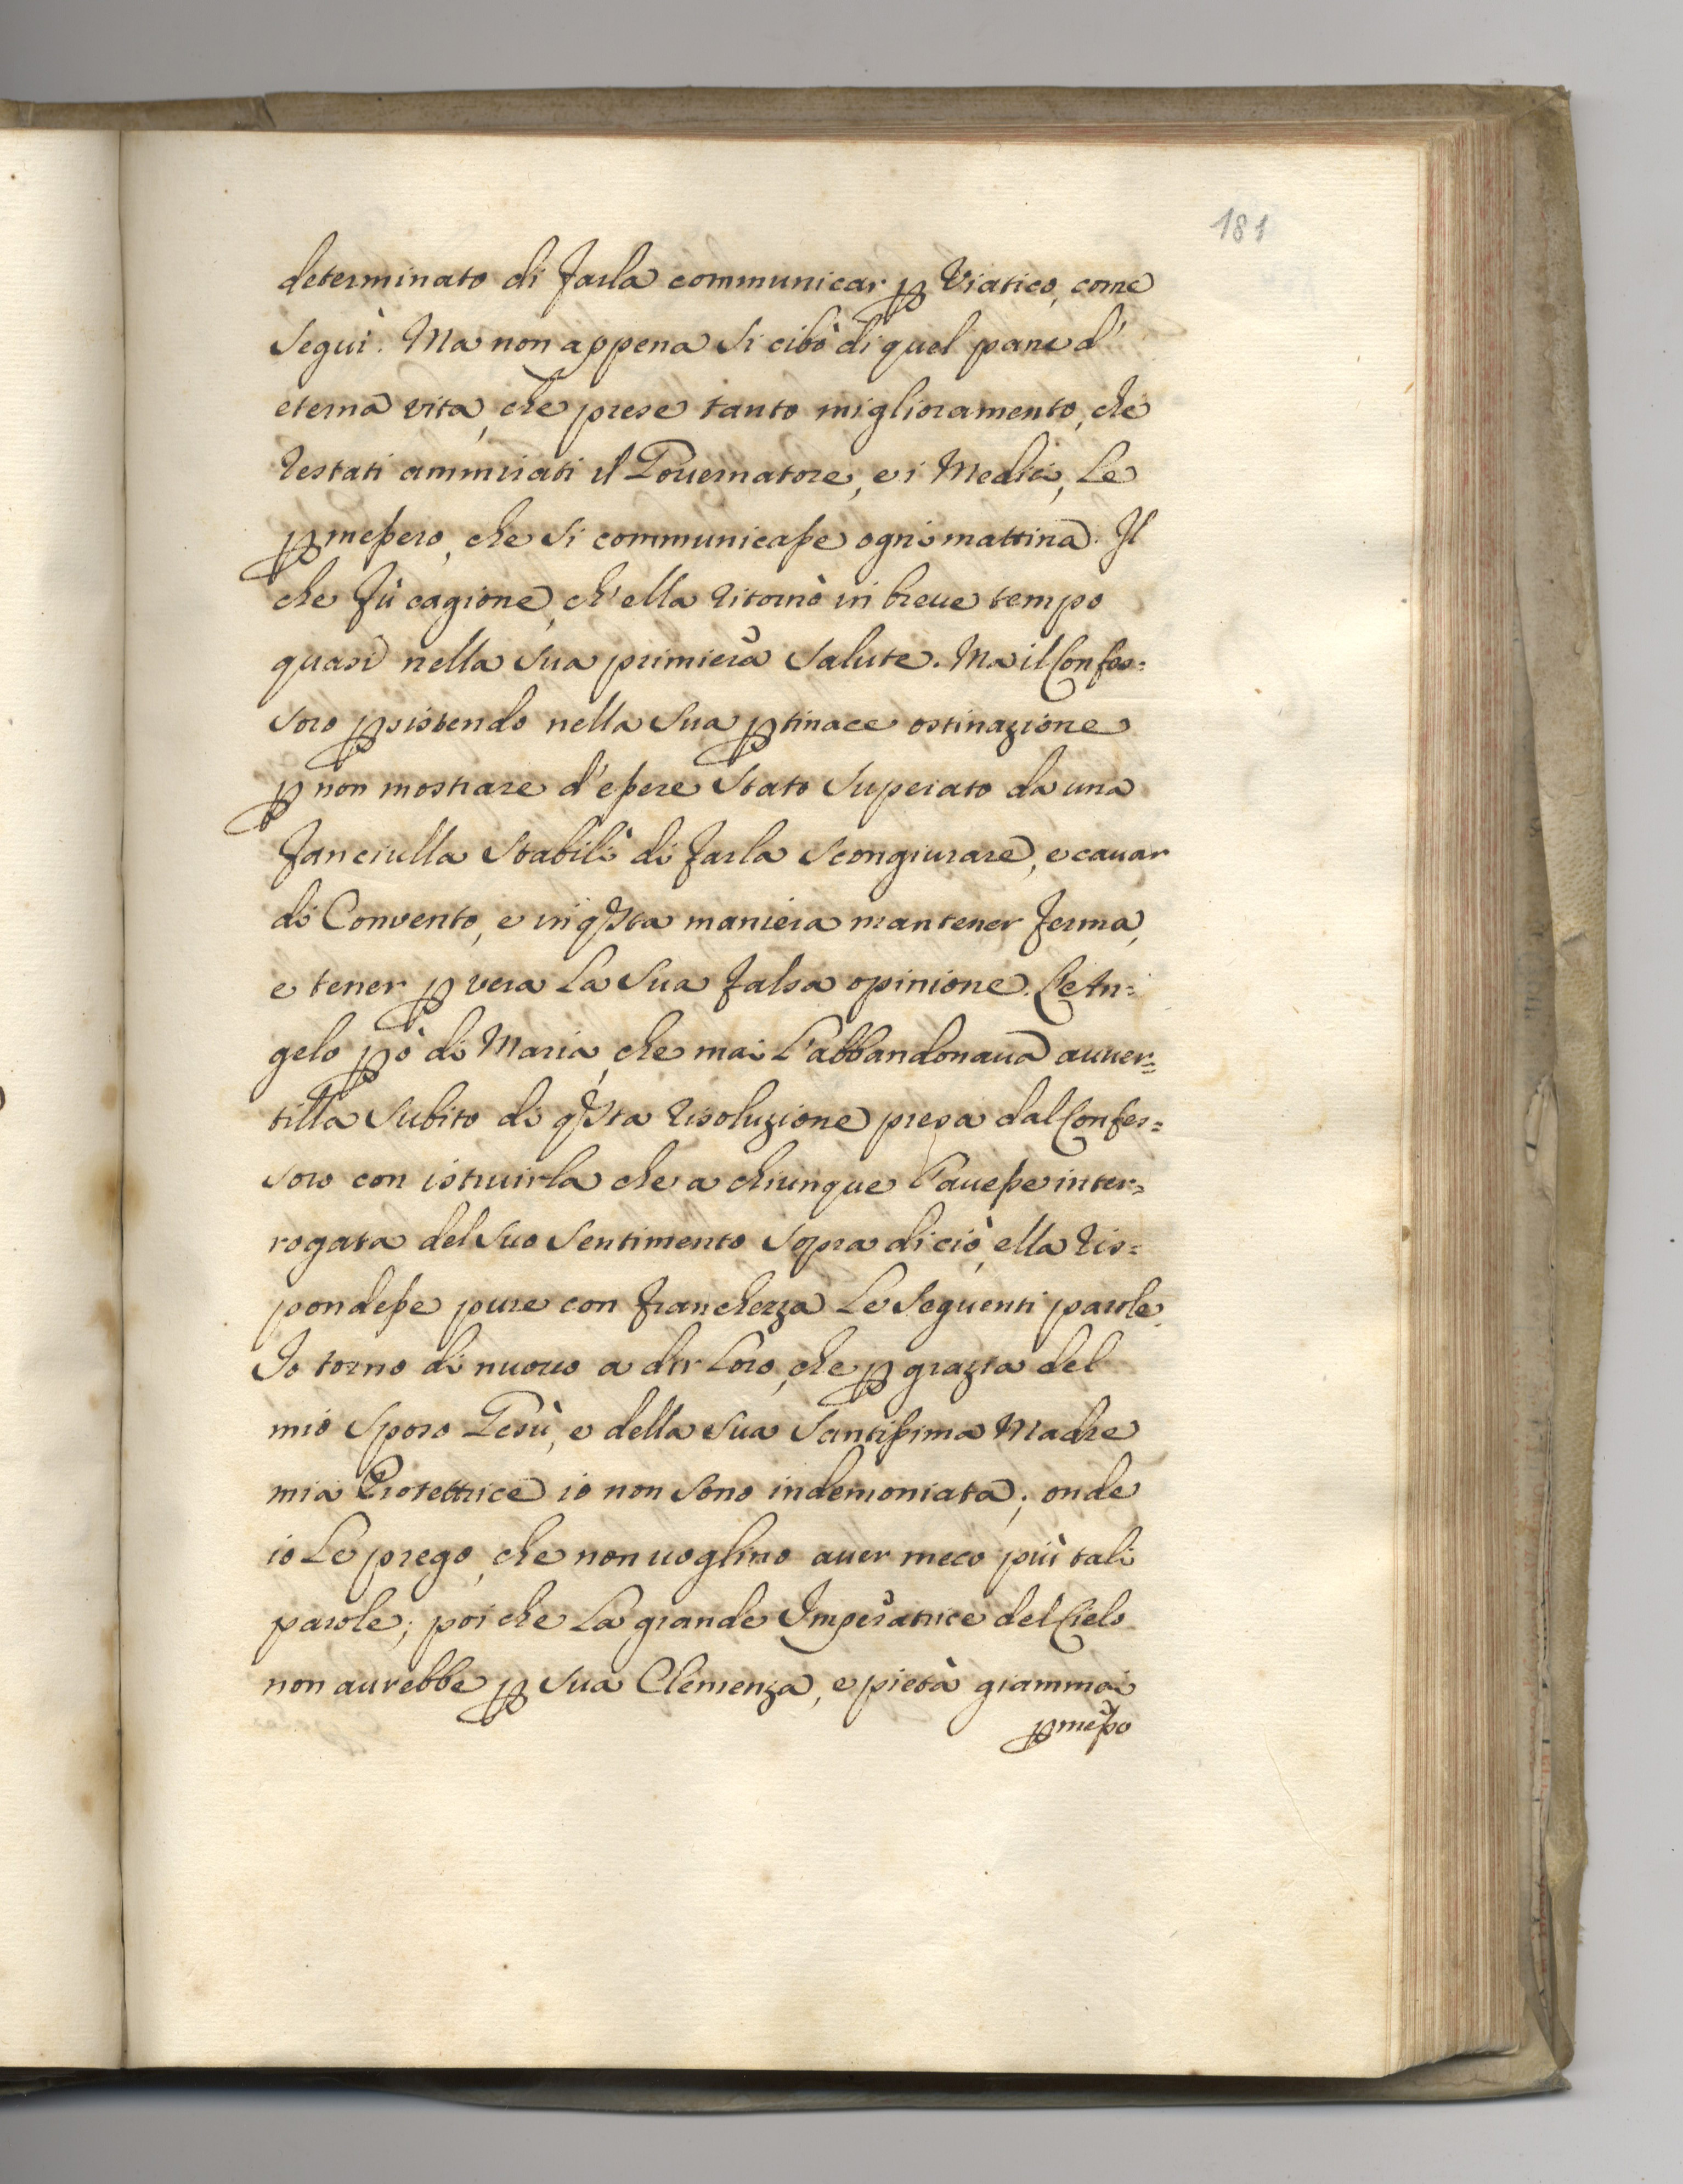 181
determinato di farla communicar ꝑ Viatico, come
seguì. Ma non appena si cibò di quel pane d'
eterna vita, che prese tanto miglioramento, che
restati ammirati il Governatore, e i Medici, le
ꝑmeßero, che si communicaße ogni mattina. Il
che fù cagione, ch'ella ritornò in breue tempo
quasi nella sua primiera salute. Ma il Confes=
soro ꝑsistendo nella sua ꝑtinace ostinazione
ꝑ non mostrare d'eßere stato superato da una
fanciulla stabilì di farla scongiurare, e cauar
di Convento, e in qsta maniera mantener ferma,
e tener ꝑ vera la sua falsa opinione. L'An=
gelo ꝑò di Maria, che mai l'abbandonaua auuer=
tilla subito di qsta risoluzione presa dal Confes=
soro con istruirla che a chiunque l'aueße inter=
rogata del suo sentimento sopra di ciò, ella ris=
pondeße pure con franchezza le seguenti parole.
Io torno di nuouo a dir loro, che ꝑ grazia del
mio Sposo Gesù, e della sua Santißima Madre
mia Protettrice io non sono indemoniata; onde
io le prego, che non uoglino auer meco più tali
parole; poi che la grande Imperatrice del Cielo
non aurebbe ꝑ sua Clemenza, e pietà giammai
ꝑmeßo